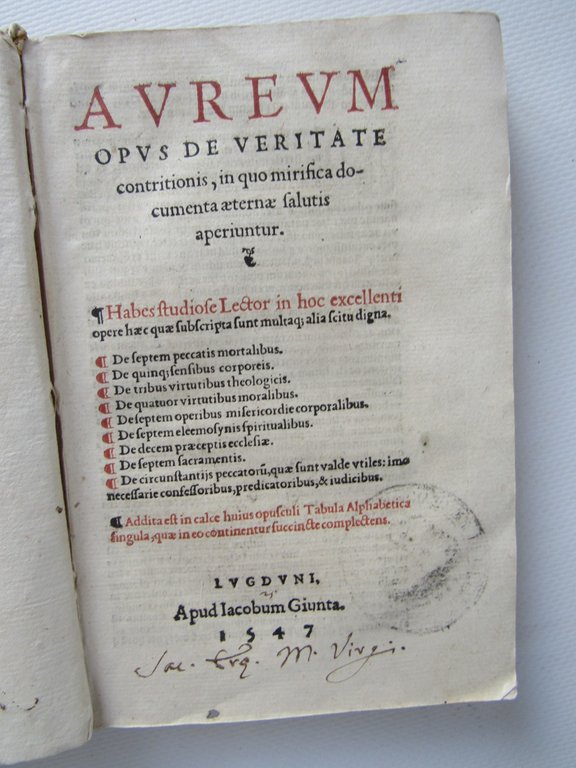 AVREVM
OPVS DE VERITATE
contritionis, in quo mirifica do-
cumenta æternæ salutis
aperiuntur.
¶ Habes studiose Lector in hoc excellenti
opere hæc quæ subscripta sunt multaq; alia scitu digna.
¶ De septem peccatis mortalibus.
¶ De quinq; sensibus corporeis.
¶ De tribus virtutibus theologicis.
¶ De quatuor virtutibus moralibus.
¶ De septem operibus misericordie corporalibus.
¶ De septem eleemosynis spiritualibus.
¶ De decem præceptis ecclesiæ.
¶ De septem sacramentis.
¶ De circunstantijs peccatorũ, quæ sunt valde vtiles: imo
necessarie confessoribus, predicatoribus, & iudicibus.
¶ Addita est in calce huius opusculi Tabula Alphabetica
singula, quæ in eo continentur succincte complectens.
LVGDVNI.
Apud Iacobum Giunta.
1547
M. Virgi.